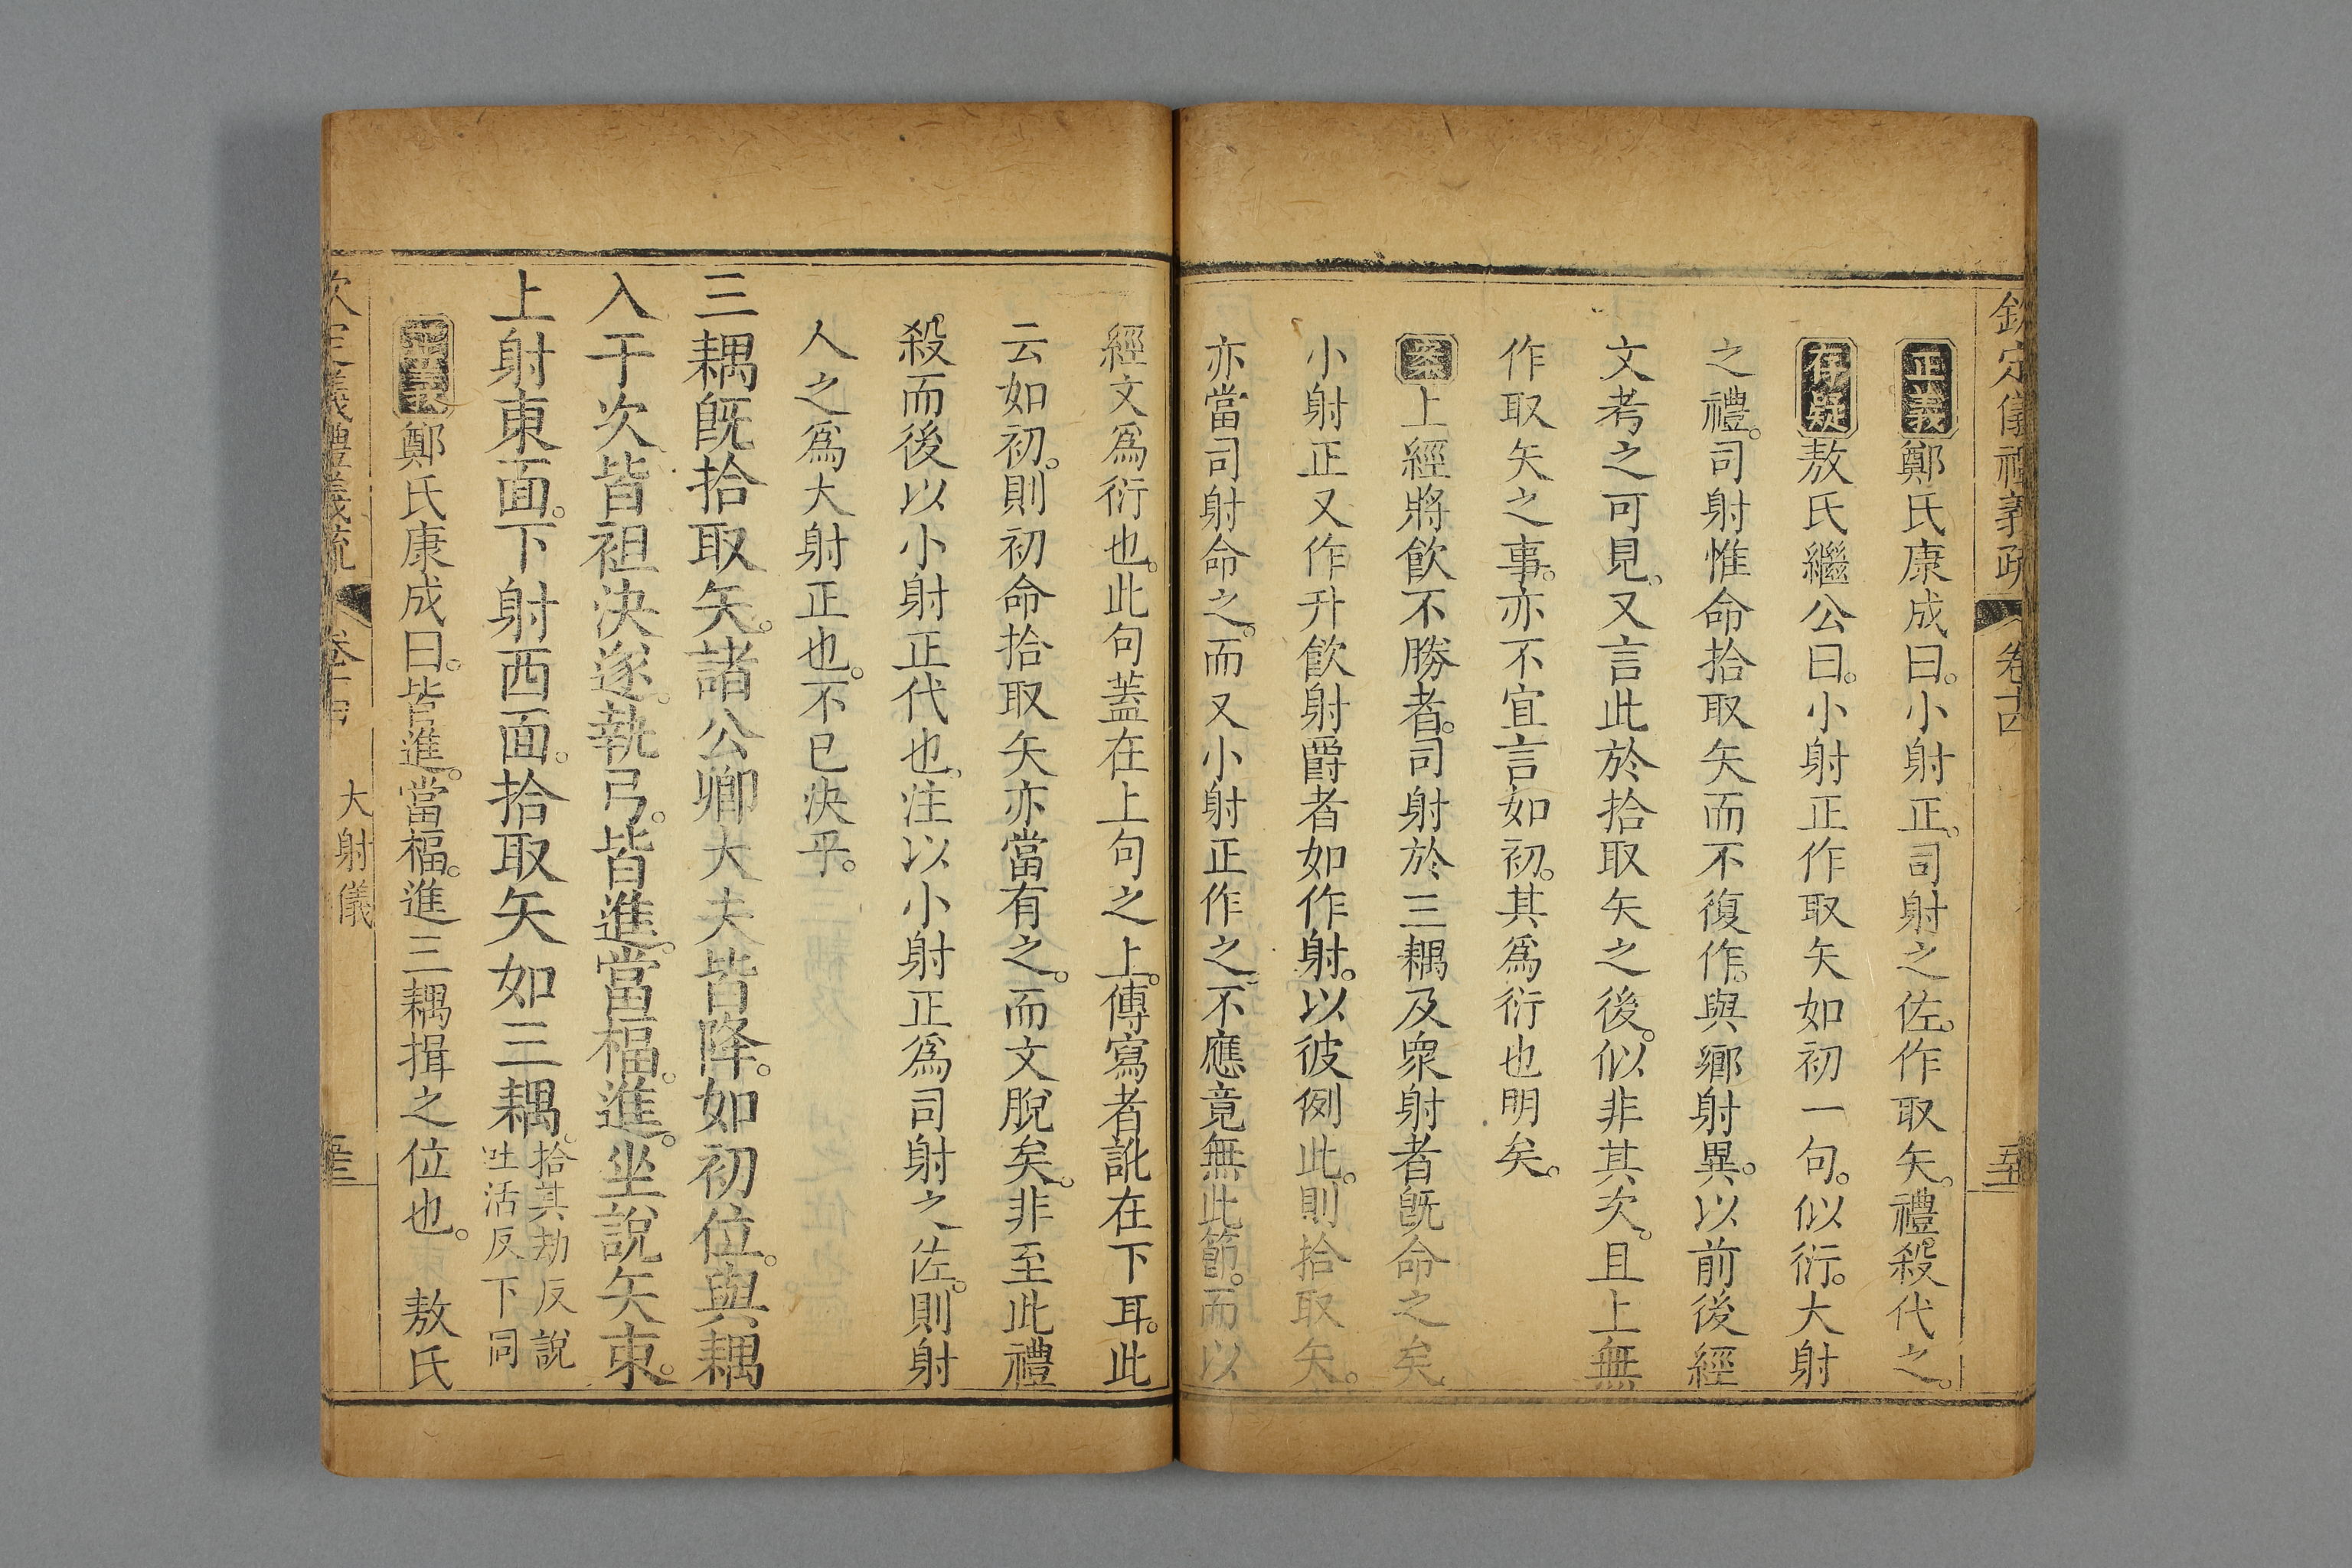 欽定儀禮義疏 卷十四
正義鄭氏康成曰。小射正。司射之佐。作取矢。禮殺代之。
存疑敖氏繼公曰。小射正作取矢如初一句。似衍。大射
之禮。司射惟命拾取矢而不復作。與鄉射異。以前後經
文考之可見。又言此於拾取矢之後。似非其次。且上無
作取矢之事。亦不宜言如初。其爲衍也明矣。
案上經將飲不勝者。司射於三耦及衆射者旣命之矣。
小射正又作升飲射爵者如作射。以彼例此。則拾取矢。
亦當司射命之。而又小射正作之。不應竟無此節。而以
經文爲衍也。此句蓋在上句之上。傳寫者訛在下耳。此
云如初。則初命拾取矢亦當有之。而文脫矣。非至此禮
殺而後以小射正代也。注以小射正爲司射之佐。則射
人之爲大射正也。不已決乎。
三耦旣拾取矢。諸公卿大夫皆降。如初位。與耦
入于次。皆袒決遂。執弓。皆進。當楅。進。坐說矢束。
上射東面。下射西面。拾取矢如三耦。拾其劫反說
吐活反下同
正義鄭氏康成曰。皆進。當楅。進三耦揖之位也。 敖氏
欽定儀禮義疏 卷十四 大射儀